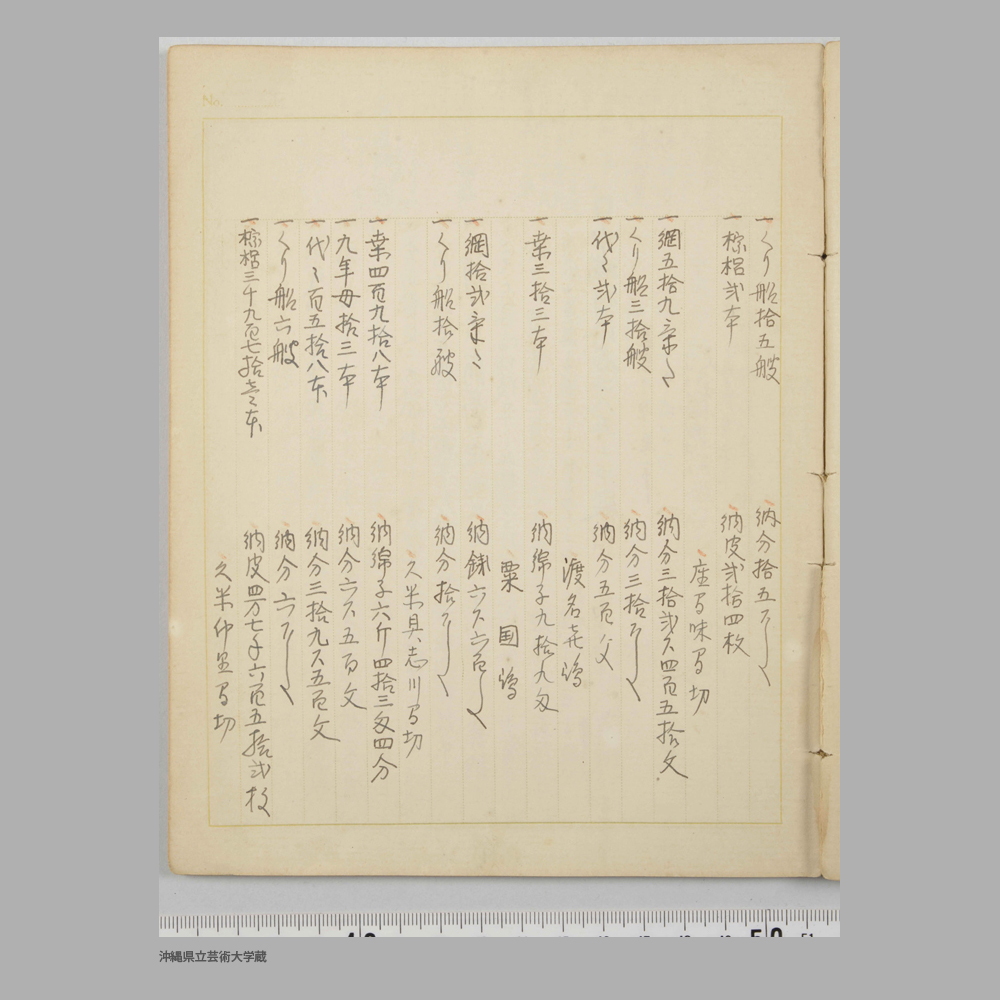 No.
一くり船拾五艘 納分拾五〆
一棕梠弐本 納皮弐拾四枚
座間味間切
一網五拾九条〻 納分三拾弐〆四百五拾文
一くり船三拾艘 納分三拾〆
一代〻弐本 納分五百文
渡名喜嶋
一桑三拾三本 納綿子九拾九匁
粟国嶋
一網拾弐条〻 納銭六〆六百
一くり船拾艘 納分拾〆
久米具志川間切
一桑四百九拾八本 納綿子六斤四拾三匁四分
一九年母拾三本 納分六〆五百文
一代〻百五拾八本 納分三拾九〆五百文
一くり船六艘 納分六〆
一棕梠三千九百七拾壱本 納皮四万七千六百五拾弐枚
久米仲里間切
50
51
沖縄県立芸術大学蔵